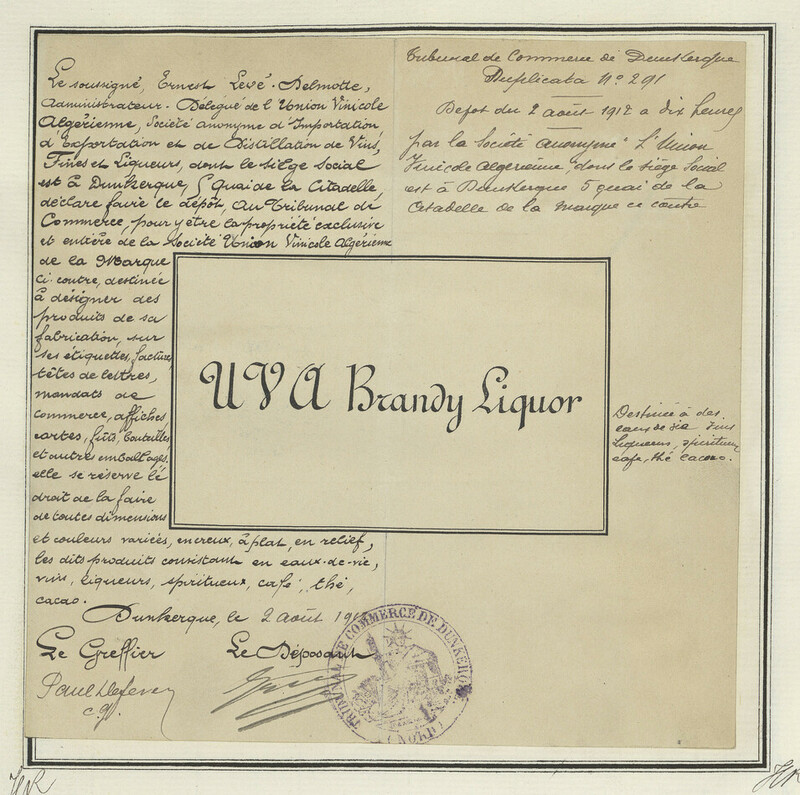 Le soussigné, Ernest Levé-Delmotte,
Administrateur-Délégué de l'Union Vinicole
Algérienne, Société anonyme d'Importation,
d'Exportation et de Distillation de Vins
Fins et Liqueurs, dont le siège social
est à Dunkerque, 5 Quai de la Citadelle,
déclare faire le dépôt, au Tribunal de
Commerce, pour y être la propriété exclusive
et entière de la Société Union Vinicole Algérienne
de la Marque
ci-contre, destinée
à désigner des
produits de sa
fabrication, sur
ses étiquettes, factures
têtes de lettres,
mandats de
commerce, affiches
cartes, fûts, bouteilles
et autres emballages.
elle se réserve le
droit de la faire
de toutes dimensions
et couleurs variées, en creux, à plat, en relief,
les dits produits consistant en eaux-de-vie,
vins, liqueurs, spiritueux, café, thé,
cacao.
Dunkerque, le 2 août
Le Greffier Le Déposant
Paul
c.g.
Tribunal de Commerce de Dunkerque
Duplicata No 291
Depot du 2 août 1912 a dix heures
par la Société anonyme "L'Union
Vinicole Algérienne, dont le siège social
est à Dunkerque 5 quai de la
Citadelle de la marque ci contre
UVA Brandy Liquor
Destinée à des
eaux de vie vins
liqueurs, spiritueux
café, thé cacao.
TRIBUNAL DE COMMERCE DE DUNKERQUE
(NORD)